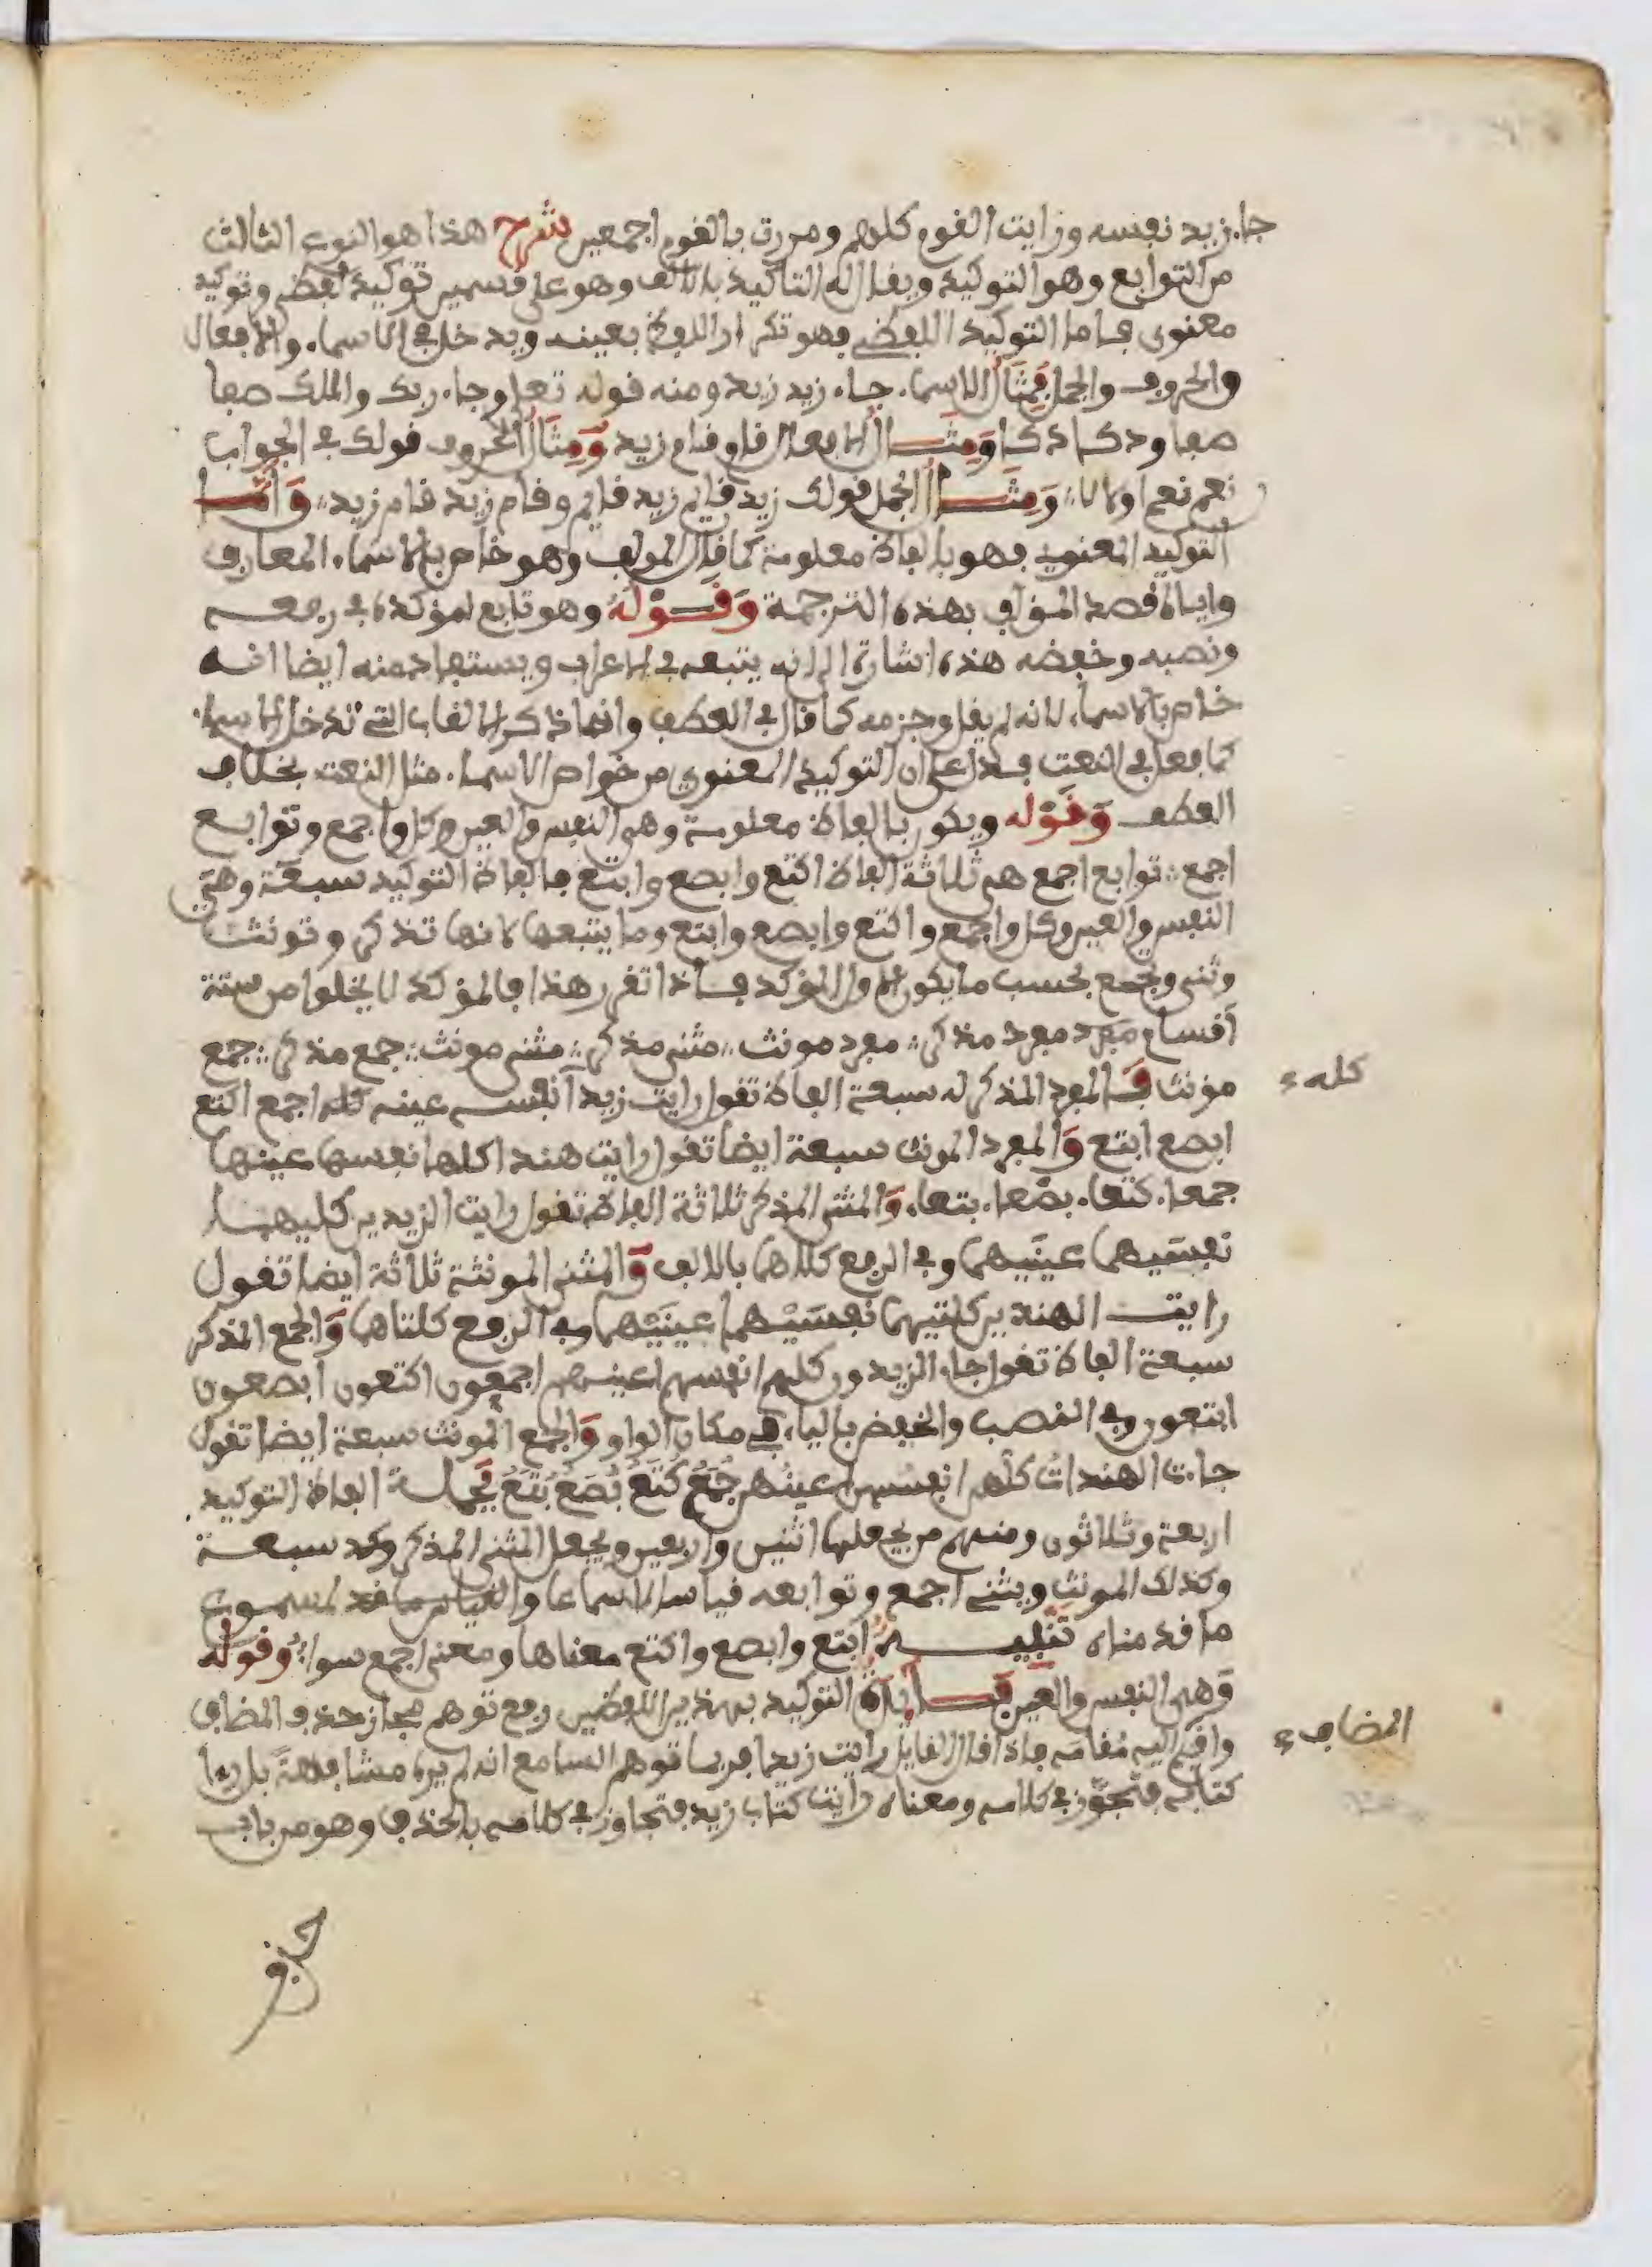 جا. زيد نفسه ورايت القوم كلهم ومررت بالقوم اجمعين شرح هذا هو النوع الثالث
من التوابع وهو التوكيد ويقال له التاكيد بالالف وهو على قسمين توكيد لفظي وتوكيد
معنوي فاما التوكيد اللفظي فهو تكرار اللفظ بعينه ويدخل في الاسماء والافعال
والحروف والجمل فمثال الاسماء جاء زيد زيد ومنه قوله تعلى وجاء ربك والملك صفا
صفا ودكا دكا ومثال الافعال قام قام زيد ومثال الحروف قولك في الجواب
نعم نعم او لا لا ومثال الجمل قولك زيد قايم زيد قايم وقام زيد قام زيد واما
التوكيد المعنوي فهو بالفاظ معلومة كما قال المولف وهو خاص بالاسماء المعارف
واياه قصد المؤلف بهذه الترجمة وقوله وهو تابع لمؤكده في رفعه
ونصبه وخفضه هذه اشارة الى انه يتبعه في الاعراب ويستفاد منه ايضا انه
خاص بالاسماء لانه لم يقل وجزمه كما قال في العطف وانما ذكر الالقاب التي تدخل الاسماء
كما فعل في النعت فدل على ان التوكيد المعنوي من خواص الاسماء مثل النعت بخلاف
العطف وقوله ويكون بالفاظ معلومة وهي النفس والعين وكل واجمع وتوابع
اجمع توابع اجمع هي ثلاثة الفاظ اكتع وابصع وابتع فالفاظ التوكيد سبعة وهي
النفس والعين وكل واجمع واكتع وابصع وابتع وما يتبعها لانها تذكر وتونث
وتثنى وتجمع بحسب ما يكون الاول المؤكد فاذا تقرر هذا فالمؤكد لا يخلوا من ستة
اقسام مفرد مفرد مذكر مفرد مونث مثنى مذكر مثنى مونث جمع مذكر جمع
مؤنث فالمفرد المذكر له سبعة الفاظ تقول رايت زيدا نفسه عينه كله اجمع اكتع
كله
ابصع ابتع والمفرد المونث سبعة ايضا تقول رايت هندا كلها نفسها عينها
جمعا. كتعا. بصعا. بتعا. والمثنى المذكر ثلاثة الفاظ تقول رايت الزيدين كليهما
نفسيهما عينيهما وفي الرفع كلاهما بالالف والمثنى المونثة ثلاثة ايضا تقول
رايت الهندين كلتيهما نفسيهما عينيهما وفي الرفع كلتاهما والجمع المذكر
سبعة الفاظ تقول جاء الزيدون كلهم انفسهم اعينهم اجمعون اكتعون ابصعون
ابتعون وفي النصب والخفض بالياء في مكان الواو والجمع المونث سبعة ايضا تقول
جاءت الهندات كلهن انفسهن اعينهن جمع كتع بصع بتع فجملة الفاظ التوكيد
اربعة وثلاثون ومنهم من يجعلها اثنين واربعين ويجعل المثنى المذكر وكد سبعة
وكذلك المونث ويثنى اجمع وتوابعه قياسا لا سماعا والقياس ما قد المسموع
ما قدمناه تنبيه ابتع وابصع واكتع معناها ومعنى اجمع سوا. وقوله
وهي النفس والعين فايدة التوكيد بهذين اللفظين رفع توهم مجاز حذف المضاف
واقيم اليه مقامه فاذا قال القايل رايت زيدا فربما توهم السامع انه لم يره مشافهة بل راا
المضاف
كتابه فتجوز في كلامه ومعناه رايت كتاب زيد فتجاوز في كلامه بالحذف وهو من باب
حذف